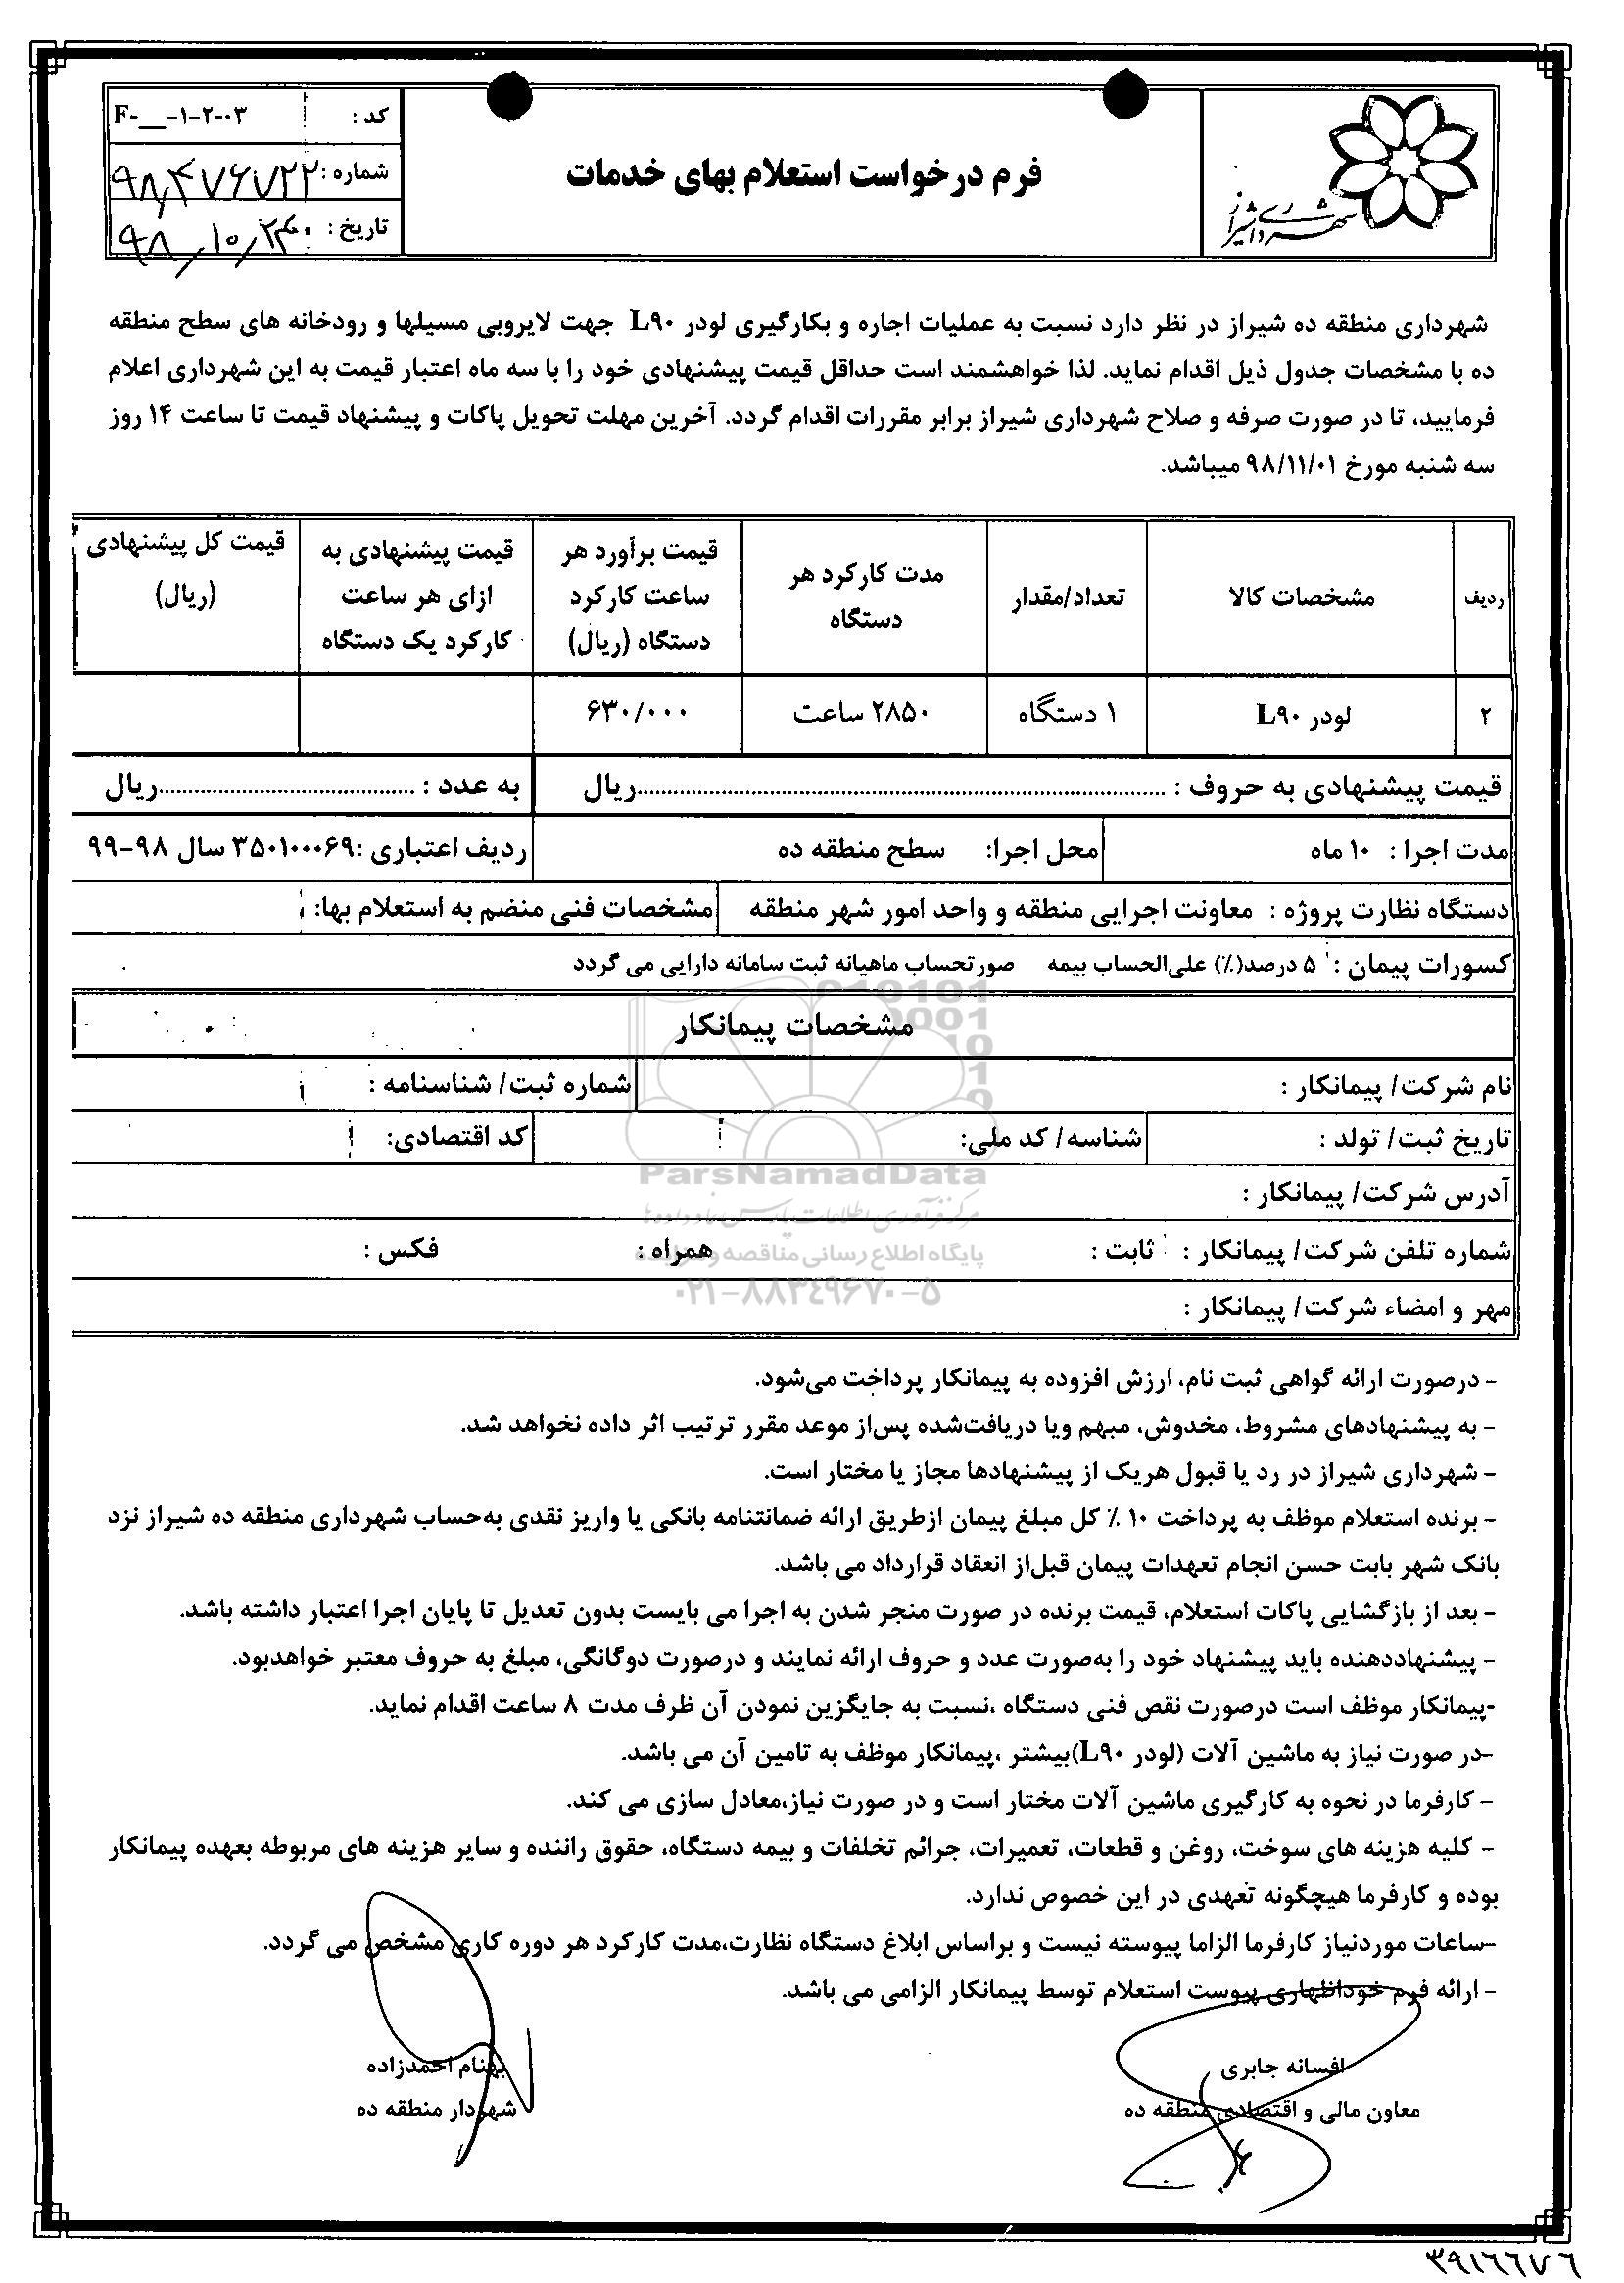 شهرداری شیراز
فرم درخواست استعلام بهای خدمات
کد : F-__-۱-۲-۰۳
شماره : ۹۸,۴۷۶۷۲۲
تاریخ : ۹۸/۱۰/
شهرداری منطقه ده شیراز در نظر دارد نسبت به عملیات اجاره و بکارگیری لودر L۹۰ جهت لایروبی مسیلها و رودخانه های سطح منطقه
ده با مشخصات جدول ذیل اقدام نماید. لذا خواهشمند است حداقل قیمت پیشنهادی خود را با سه ماه اعتبار قیمت به این شهرداری اعلام
فرمایید، تا در صورت صرفه و صلاح شهرداری شیراز برابر مقررات اقدام گردد. آخرین مهلت تحویل پاکات و پیشنهاد قیمت تا ساعت ۱۴ روز
سه شنبه مورخ ۹۸/۱۱/۰۱ میباشد.
ردیف
مشخصات کالا
تعداد/مقدار
مدت کارکرد هر
دستگاه
قیمت برآورد هر
ساعت کارکرد
دستگاه (ریال)
قیمت پیشنهادی به
ازای هر ساعت
کارکرد یک دستگاه
قیمت کل پیشنهادی
(ریال)
۲ لودر L۹۰ ۱ دستگاه ۲۸۵۰ ساعت ۶۳۰/۰۰۰
قیمت پیشنهادی به حروف : ..........ریال به عدد : ..........ریال
مدت اجرا : ۱۰ ماه محل اجرا: سطح منطقه ده ردیف اعتباری :۳۵۰۱۰۰۰۶۹ سال ۹۸-۹۹
دستگاه نظارت پروژه : معاونت اجرایی منطقه و واحد امور شهر منطقه مشخصات فنی منضم به استعلام بها:
کسورات پیمان : ۵ درصد(٪) علی‌الحساب بیمه صورتحساب ماهیانه ثبت سامانه دارایی می گردد
مشخصات پیمانکار
نام شرکت/ پیمانکار : شماره ثبت/ شناسنامه :
تاریخ ثبت/ تولد : شناسه/ کد ملی: کد اقتصادی:
ParsNamadData
آدرس شرکت/ پیمانکار :
شماره تلفن شرکت/ پیمانکار : ثابت : همراه : فکس :
پایگاه اطلاع رسانی مناقصه و مزایده
۰۲۱-۸۸۳۴۹۶۷۰-۵
مهر و امضاء شرکت/ پیمانکار :
- درصورت ارائه گواهی ثبت نام، ارزش افزوده به پیمانکار پرداخت می‌شود.
- به پیشنهادهای مشروط، مخدوش، مبهم ویا دریافت‌شده پس‌از موعد مقرر ترتیب اثر داده نخواهد شد.
- شهرداری شیراز در رد یا قبول هریک از پیشنهادها مجاز یا مختار است.
- برنده استعلام موظف به پرداخت ۱۰ ٪ کل مبلغ پیمان ازطریق ارائه ضمانتنامه بانکی یا واریز نقدی به‌حساب شهرداری منطقه ده شیراز نزد
بانک شهر بابت حسن انجام تعهدات پیمان قبل‌از انعقاد قرارداد می باشد.
- بعد از بازگشایی پاکات استعلام، قیمت برنده در صورت منجر شدن به اجرا می بایست بدون تعدیل تا پایان اجرا اعتبار داشته باشد.
- پیشنهاددهنده باید پیشنهاد خود را به‌صورت عدد و حروف ارائه نمایند و درصورت دوگانگی، مبلغ به حروف معتبر خواهدبود.
-پیمانکار موظف است درصورت نقص فنی دستگاه ،نسبت به جایگزین نمودن آن ظرف مدت ۸ ساعت اقدام نماید.
-در صورت نیاز به ماشین آلات (لودر L۹۰)بیشتر ،پیمانکار موظف به تامین آن می باشد.
- کارفرما در نحوه به کارگیری ماشین آلات مختار است و در صورت نیاز،معادل سازی می کند.
- کلیه هزینه های سوخت، روغن و قطعات، تعمیرات، جرائم تخلفات و بیمه دستگاه، حقوق راننده و سایر هزینه های مربوطه بعهده پیمانکار
بوده و کارفرما هیچگونه تعهدی در این خصوص ندارد.
-ساعات موردنیاز کارفرما الزاما پیوسته نیست و براساس ابلاغ دستگاه نظارت،مدت کارکرد هر دوره کاری مشخص می گردد.
- ارائه فرم خوداظهاری پیوست استعلام توسط پیمانکار الزامی می باشد.
افسانه جابری
معاون مالی و اقتصادی منطقه ده
بهنام احمدزاده
شهردار منطقه ده
۳۹۱۶۶۷۶